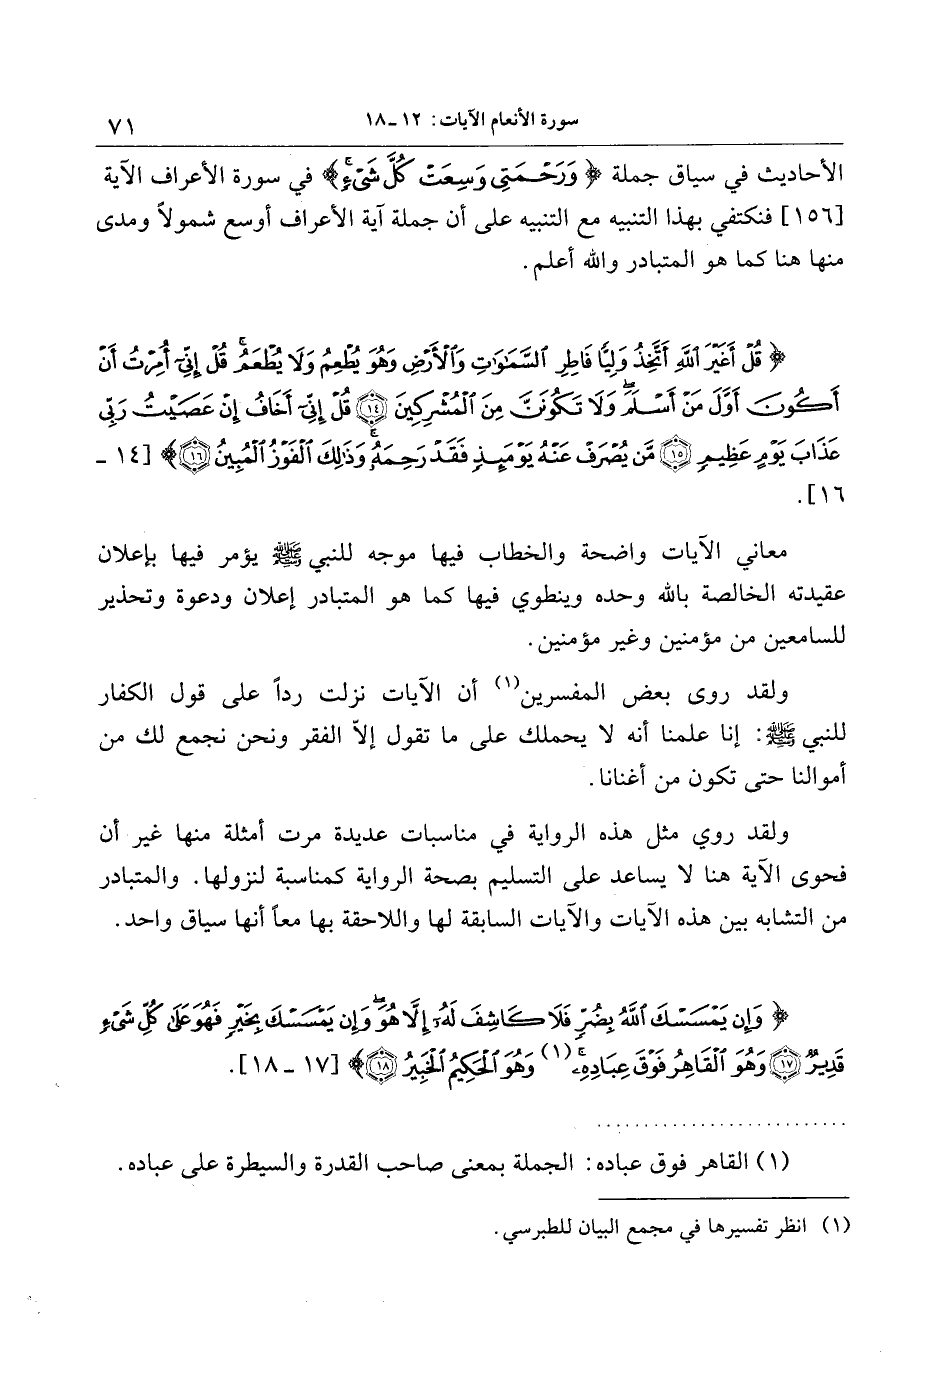 سورة الأنعام الآيات: ١٢ ـ ١٨
٧١
الأحاديث في سياق جملة ﴿ وَرَحْمَتِي وَسِعَتْ كُلَّ شَيْءٍ ﴾ في سورة الأعراف الآية
[١٥٦] فنكتفي بهذا التنبيه مع التنبيه على أن جملة آية الأعراف أوسع شمولاً ومدى
منها هنا كما هو المتبادر والله أعلم.
﴿ قُلْ أَغَيْرَ ٱللَّهِ أَتَّخِذُ وَلِيًّا فَاطِرِ ٱلسَّمَٰوَٰتِ وَٱلْأَرْضِ وَهُوَ يُطْعِمُ وَلَا يُطْعَمُ ۗ قُلْ إِنِّىٓ أُمِرْتُ أَنْ
أَكُونَ أَوَّلَ مَنْ أَسْلَمَ ۖ وَلَا تَكُونَنَّ مِنَ ٱلْمُشْرِكِينَ ١٤ قُلْ إِنِّىٓ أَخَافُ إِنْ عَصَيْتُ رَبِّى
عَذَابَ يَوْمٍ عَظِيمٍ ١٥ مَّن يُصْرَفْ عَنْهُ يَوْمَئِذٍ فَقَدْ رَحِمَهُۥ ۚ وَذَٰلِكَ ٱلْفَوْزُ ٱلْمُبِينُ ١٦ ﴾ [١٤ ـ
١٦].
معاني الآيات واضحة والخطاب فيها موجه للنبي ﷺ يؤمر فيها بإعلان
عقيدته الخالصة بالله وحده وينطوي فيها كما هو المتبادر إعلان ودعوة وتحذير
للسامعين من مؤمنين وغير مؤمنين.
ولقد روى بعض المفسرين(١) أن الآيات نزلت رداً على قول الكفار
للنبي ﷺ: إنا علمنا أنه لا يحملك على ما تقول إلاّ الفقر ونحن نجمع لك من
أموالنا حتى تكون من أغنانا.
ولقد روي مثل هذه الرواية في مناسبات عديدة مرت أمثلة منها غير أن
فحوى الآية هنا لا يساعد على التسليم بصحة الرواية كمناسبة لنزولها. والمتبادر
من التشابه بين هذه الآيات والآيات السابقة لها واللاحقة بها معاً أنها سياق واحد.
﴿ وَإِن يَمْسَسْكَ ٱللَّهُ بِضُرٍّ فَلَا كَاشِفَ لَهُۥٓ إِلَّا هُوَ ۖ وَإِن يَمْسَسْكَ بِخَيْرٍ فَهُوَ عَلَىٰ كُلِّ شَىْءٍ
قَدِيرٌ ١٧ وَهُوَ ٱلْقَاهِرُ فَوْقَ عِبَادِهِۦ ۚ (١) وَهُوَ ٱلْحَكِيمُ ٱلْخَبِيرُ ١٨ ﴾ [١٧ ـ ١٨].
(١) القاهر فوق عباده: الجملة بمعنى صاحب القدرة والسيطرة على عباده.
(١) انظر تفسيرها في مجمع البيان للطبرسي.